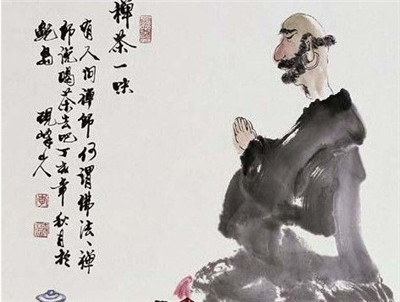 禅茶一味
有人问禅师何谓佛法、禅
师说喝茶去吧丁亥年秋月於
鮀岛
砚峰山人